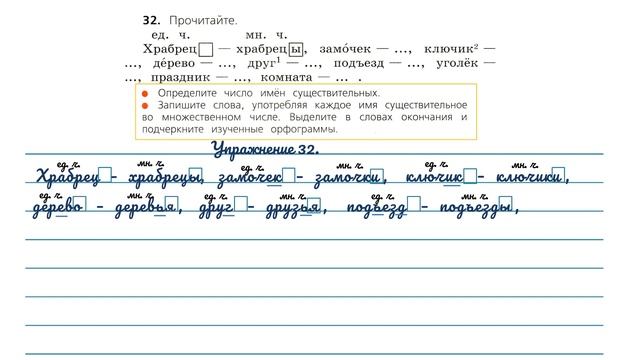 32. Прочитайте.
ед. ч. мн. ч.
Храбрец — храбрецы, замо́чек — ..., ключик² —
..., де́рево — ..., друг¹ — ..., подъезд — ..., уголёк —
..., праздник — ..., комната — ... .
• Определите число имён существительных.
• Запишите слова, употребляя каждое имя существительное
во множественном числе. Выделите в словах окончания и
подчеркните изученные орфограммы.
Упражнение 32.
ед. ч. мн. ч. ед. ч. мн. ч. ед. ч. мн. ч.
Храбрец - храбрецы, замочек - замочки, ключик - ключики,
ед. ч. мн. ч. ед. ч. мн. ч. ед. ч. мн. ч.
дерево - деревья, друг - друзья, подъезд - подъезды,